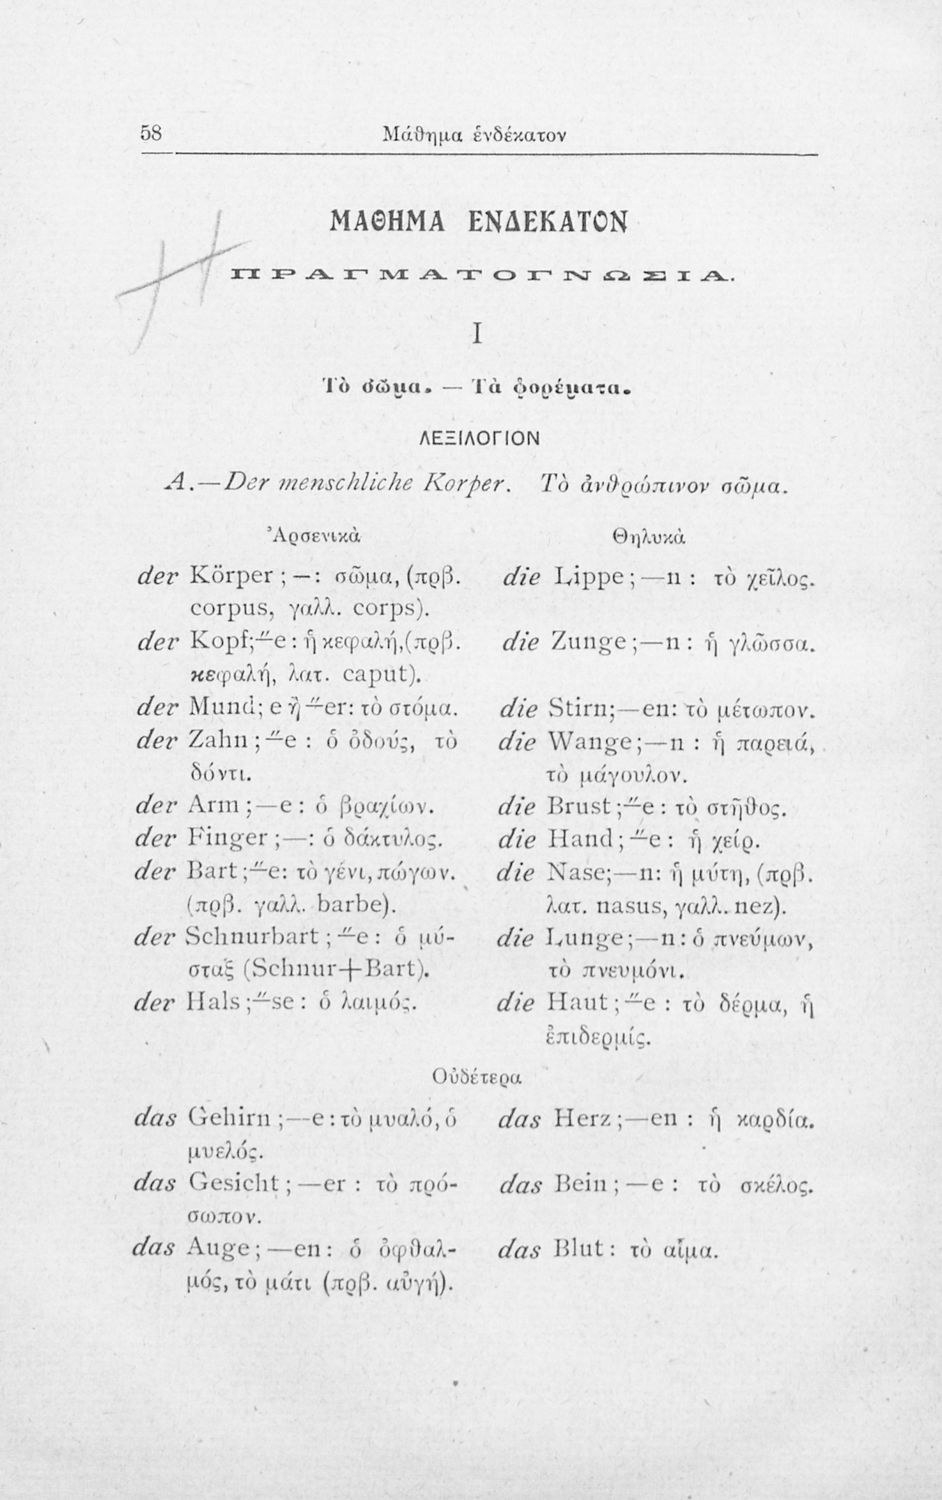 58
Μάθημα ἑνδέκατον
ΜΑΘΗΜΑ ΕΝΔΕΚΑΤΟΝ
ΠΡΑΓΜΑΤΟΓΝΩΣΙΑ.
I
Τὸ σῶμα. — Τὰ φορέματα.
ΛΕΞΙΛΟΓΙΟΝ
A.—Der menschliche Korper. Τὸ ἀνθρώπινον σῶμα.
Ἀρσενικὰ
der Körper ; —: σῶμα, (πρβ.
corpus, γαλλ. corps).
der Kopf;—̈e : ἡ κεφαλή,(πρβ.
κεφαλή, λατ. caput).
der Mund; e ἢ —̈er: τὸ στόμα.
der Zahn ; —̈e : ὁ ὀδούς, τὸ
δόντι.
der Arm ; —e : ὁ βραχίων.
der Finger ; —: ὁ δάκτυλος.
der Bart ;—̈e: τὸ γένι, πώγων.
(πρβ. γαλλ. barbe).
der Schnurbart ; —̈e : ὁ μύ-
σταξ (Schnur+Bart).
der Hals ;—̈se : ὁ λαιμός.
Θηλυκὰ
die Lippe ; —n : τὸ χεῖλος.
die Zunge ; —n : ἡ γλῶσσα.
die Stirn; —en: τὸ μέτωπον.
die Wange ; —n : ἡ παρειά,
τὸ μάγουλον.
die Brust ;—̈e : τὸ στῆθος.
die Hand ; —̈e : ἡ χείρ.
die Nase; —n: ἡ μύτη, (πρβ.
λατ. nasus, γαλλ. nez).
die Lunge ; —n : ὁ πνεύμων,
τὸ πνευμόνι.
die Haut ; —̈e : τὸ δέρμα, ἡ
ἐπιδερμίς.
Οὐδέτερα
das Gehirn ; —e : τὸ μυαλό, ὁ
μυελός.
das Gesicht ; —er : τὸ πρό-
σωπον.
das Auge ; —en : ὁ ὀφθαλ-
μός, τὸ μάτι (πρβ. αὐγή).
das Herz ; —en : ἡ καρδία.
das Bein ; —e : τὸ σκέλος.
das Blut : τὸ αἷμα.